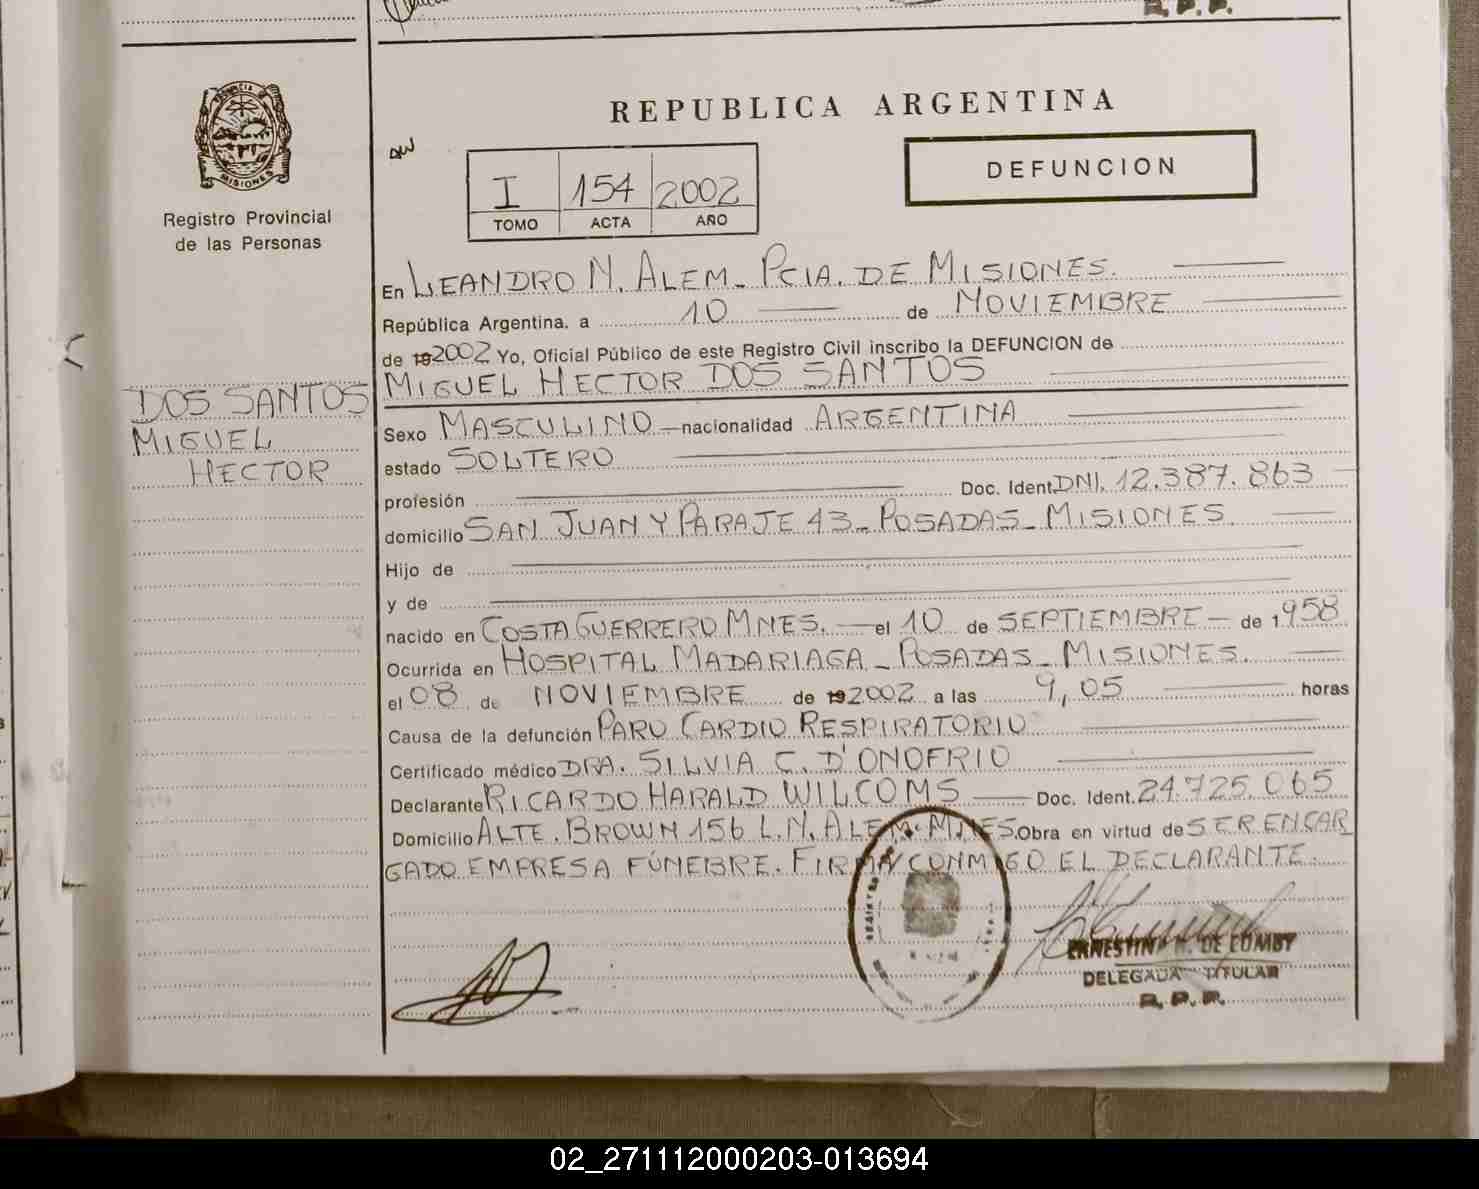 R. P. P.
PROVINCIA DE
MISIONES
Registro Provincial
de las Personas
DOS SANTOS
MIGUEL
HECTOR
REPUBLICA ARGENTINA
I 154 2002
TOMO ACTA AÑO
DEFUNCION
En LEANDRO N. ALEM. PCIA. DE MISIONES.
República Argentina, a 10 de NOVIEMBRE
de 192002 Yo, Oficial Público de este Registro Civil inscribo la DEFUNCION de
MIGUEL HECTOR DOS SANTOS
Sexo MASCULINO nacionalidad ARGENTINA
estado SOLTERO
profesión Doc. Ident. DNI. 12.387.863
domicilio SAN JUAN Y PARAJE 43 - POSADAS - MISIONES.
Hijo de
y de
nacido en COSTA GUERRERO MNES. el 10 de SEPTIEMBRE de 1.958
Ocurrida en HOSPITAL MADARIAGA - POSADAS - MISIONES.
el 08 de NOVIEMBRE de 192002 a las 9,05 horas
Causa de la defunción PARO CARDIO RESPIRATORIO
Certificado médico DRA. SILVIA C. D'ONOFRIO
Declarante RICARDO HARALD WILCOMS Doc. Ident. 24.725.065
Domicilio ALTE. BROWN 156 L.N. ALEM. MNES. Obra en virtud de SER ENCAR
GADO EMPRESA FÚNEBRE. FIRMA CONMIGO EL DECLARANTE.
DELEGADA TITULAR
R. P. P.
02_271112000203-013694